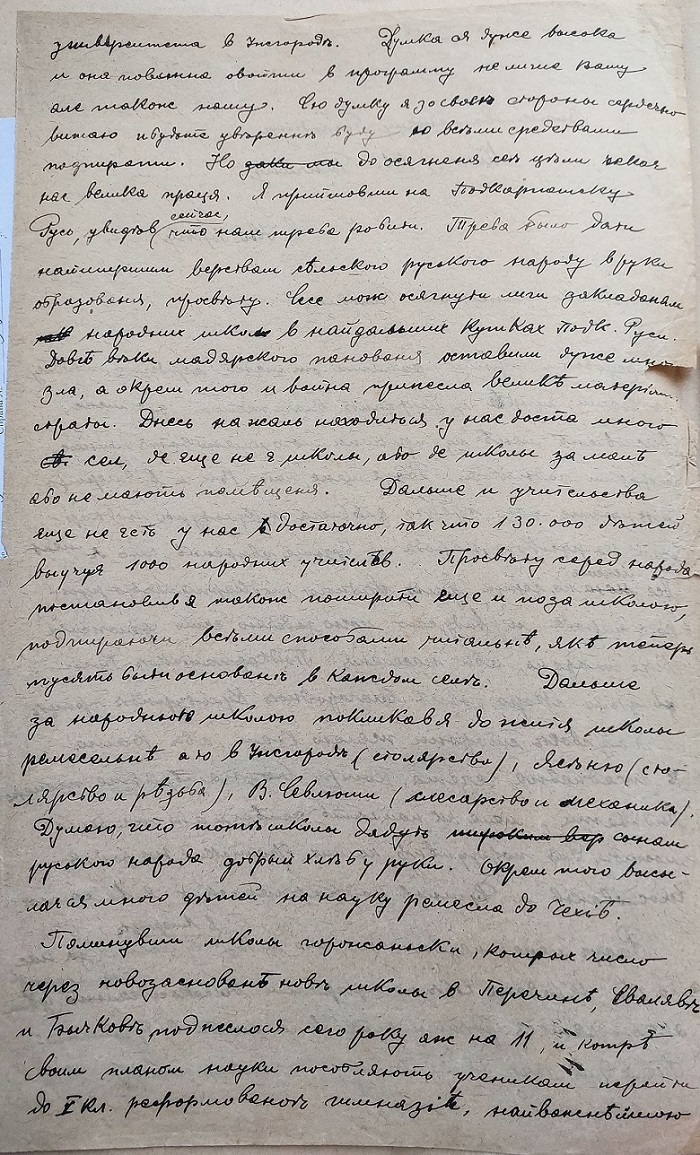 университета в Унгородѣ. Думка ся дуже высока
и она повинна овойти в программу не лише Вашу
але також нашу. Сю думку я зо своеѣ стороны сердечно
витаю и будьте увѣренѣ буду ю всѣми средствами
подпирати. Но заки мы до осягненя сеѣ цѣли чекае
нас велика праця. Я прийшовши на Подкарпатску
Русь, увидѣв сейчас, что нам треба робити. Треба было дати
найширшим верствам сѣльского руського народу в руки
образованя, просвѣту. Се мож осягнути лиш закладанам
народних школ в найдальших кутках Подк. Руси.
Довгѣ вѣки мадярского панованя оставили дуже много
зла, а окрем того и война принесла великѣ матерiял.
страты. Днесь на жаль находиться у нас доста много
сел, де еще не є школы, або де школы за малѣ
або не мають помѣщеня. Дальше и учительства
еще не єсть у нас достаточно, так что 130.000 дѣтей
выучує 1000 народних учителѣв. Просвѣту серед народа
постановив я также поширити еще и поза школою,
подпираючи всѣми способами читальнѣ, якѣ теперь
мусять быти основанѣ в каждом селѣ. Дальше
за народною школою покликав я до житя школы
ремесельнѣ а то в Унгородѣ (столярство), Ясѣню (сто-
лярство и рѣзьба), В. Севлюши (слесарство и механика).
Думаю, что тотѣ школы дадуть широким вер сынам
руського народа добрый хлѣб у руки. Окрем того высы-
лаєся много дѣтей на науку ремесла до Чехiѣ.
Поминувши школы горожаньски, котрых число
через новозаснованѣ новѣ школы в Перечинѣ, Свалявѣ
и Бычковѣ поднеслося сего року аж на 11, и котрѣ
своим планом науки пособляють ученикам перейти
до V кл. реформованоѣ гимназiѣ, найважнѣйшою